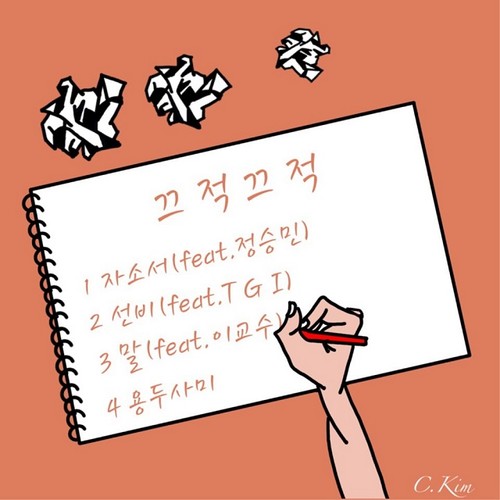 끄적끄적
1 자소서(feat.정승민)
2 선비(feat.T G I)
3 말(feat.이교수)
4 용두사미
C.Kim